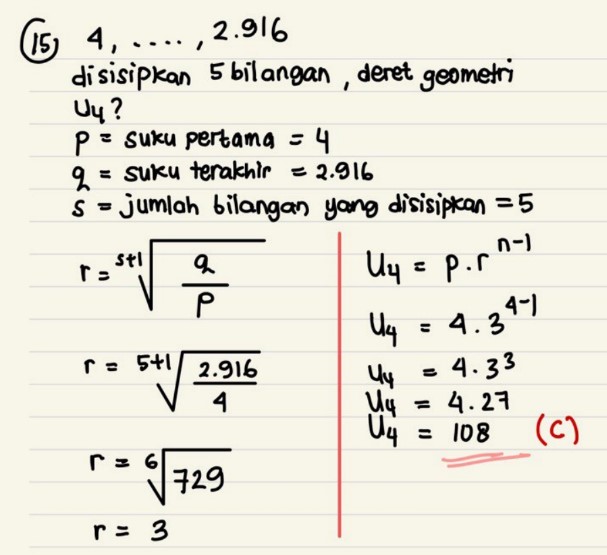 15) 4, ...., 2.916
disisipkan 5 bilangan, deret geometri
U4?
p = suku pertama = 4
q = suku terakhir = 2.916
s = jumlah bilangan yang disisipkan = 5
r = ˢ⁺¹√(q/p)
r = ⁵⁺¹√(2.916/4)
r = ⁶√729
r = 3
U4 = p.rⁿ⁻¹
U4 = 4.3⁴⁻¹
U4 = 4.3³
U4 = 4.27
U4 = 108 (C)